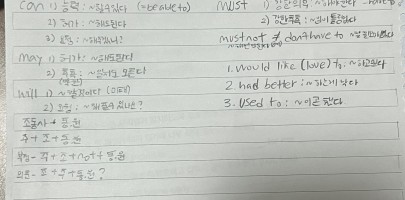 can 1) 능력 : ~할수있다 (=be able to)
2) 허가 : ~해도된다
3) 요청 : ~해줄래?
may 1) 허가 : ~해도된다
2) 추측 : ~일지도 모른다
will 1) ~할것이다 (미래)
2) 요청 : ~해줄수있나?
조동사 + 동.원
주 + 조 + 동.원
부정 - 주 + 조 + not + 동.원
의문 - 조 + 주 + 동.원 ?
must 1)
2) 강한추측 : ~임에 틀림없다
must not ≠ don't have to
1. would like (love) to : ~하고싶다
2. had better : ~하는게 낫다
3. used to : ~이곤 했다.